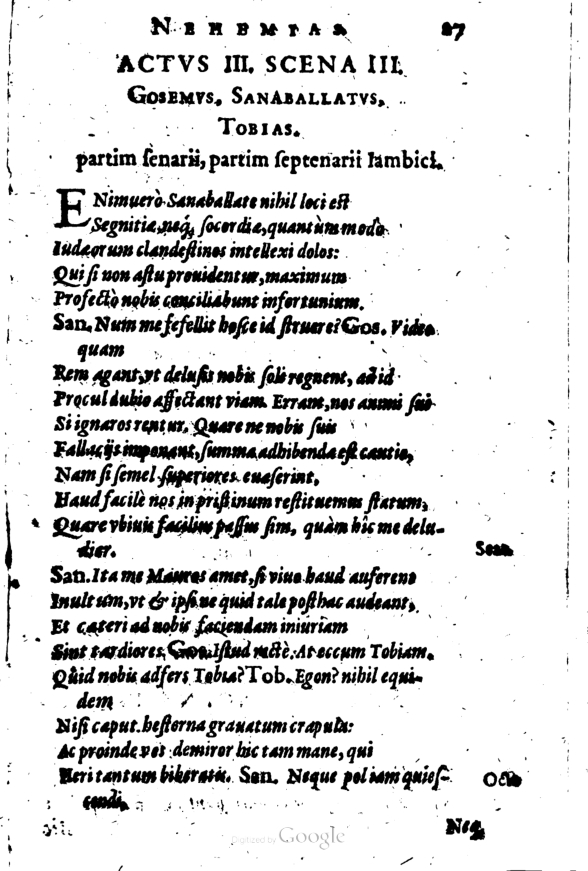 NEHEMIAS 27
ACTVS III. SCENA III.
GOSEMVS. SANABALLATVS.
TOBIAS.
partim ſenarii, partim ſeptenarii Iambici.
ENimuerò Sanaballate nihil loci eſt
Segnitiæ, neq; ſocordiæ, quantùm modo
Iudæorum clandeſtinos intellexi dolos:
Qui ſi non aſtu prouidentur, maximum
Profectò nobis conciliabunt infortunium.
San. Num me fefellit hoſce id ſtruere? Gos. Video
quam
Rem agant, vt deluſis nobis ſoli regnent, ad id
Procul dubio affectant viam. Errant, nos animi ſui
Si ignaros rentur. Quare ne nobis ſuis
Fallacijs imponant, ſumma adhibenda eſt cautio,
Nam ſi ſemel ſuperiores euaſerint,
Haud facilè nos in priſtinum reſtituemus ſtatum,
Quare vbiuis facilius paſſus ſim, quàm hic me delu-
dier.
San. Ita me Mauors amet, ſi viuo haud auferent
Inultum, vt & ipſi ne quid tale poſthac audeant,
Et cæteri ad nobis faciendam iniuriam
Sint tardiores. Gos. Iſtud rectè. At eccum Tobiam.
Quid nobis adfers Tobia? Tob. Egon? nihil equi-
dem
Niſi caput heſterna grauatum crapula:
Ac proinde vos demiror hic tam mane, qui
Heri tantum biberatis. San. Neque pol iam quieſ-
cendi
Neq;
Digitized by Google